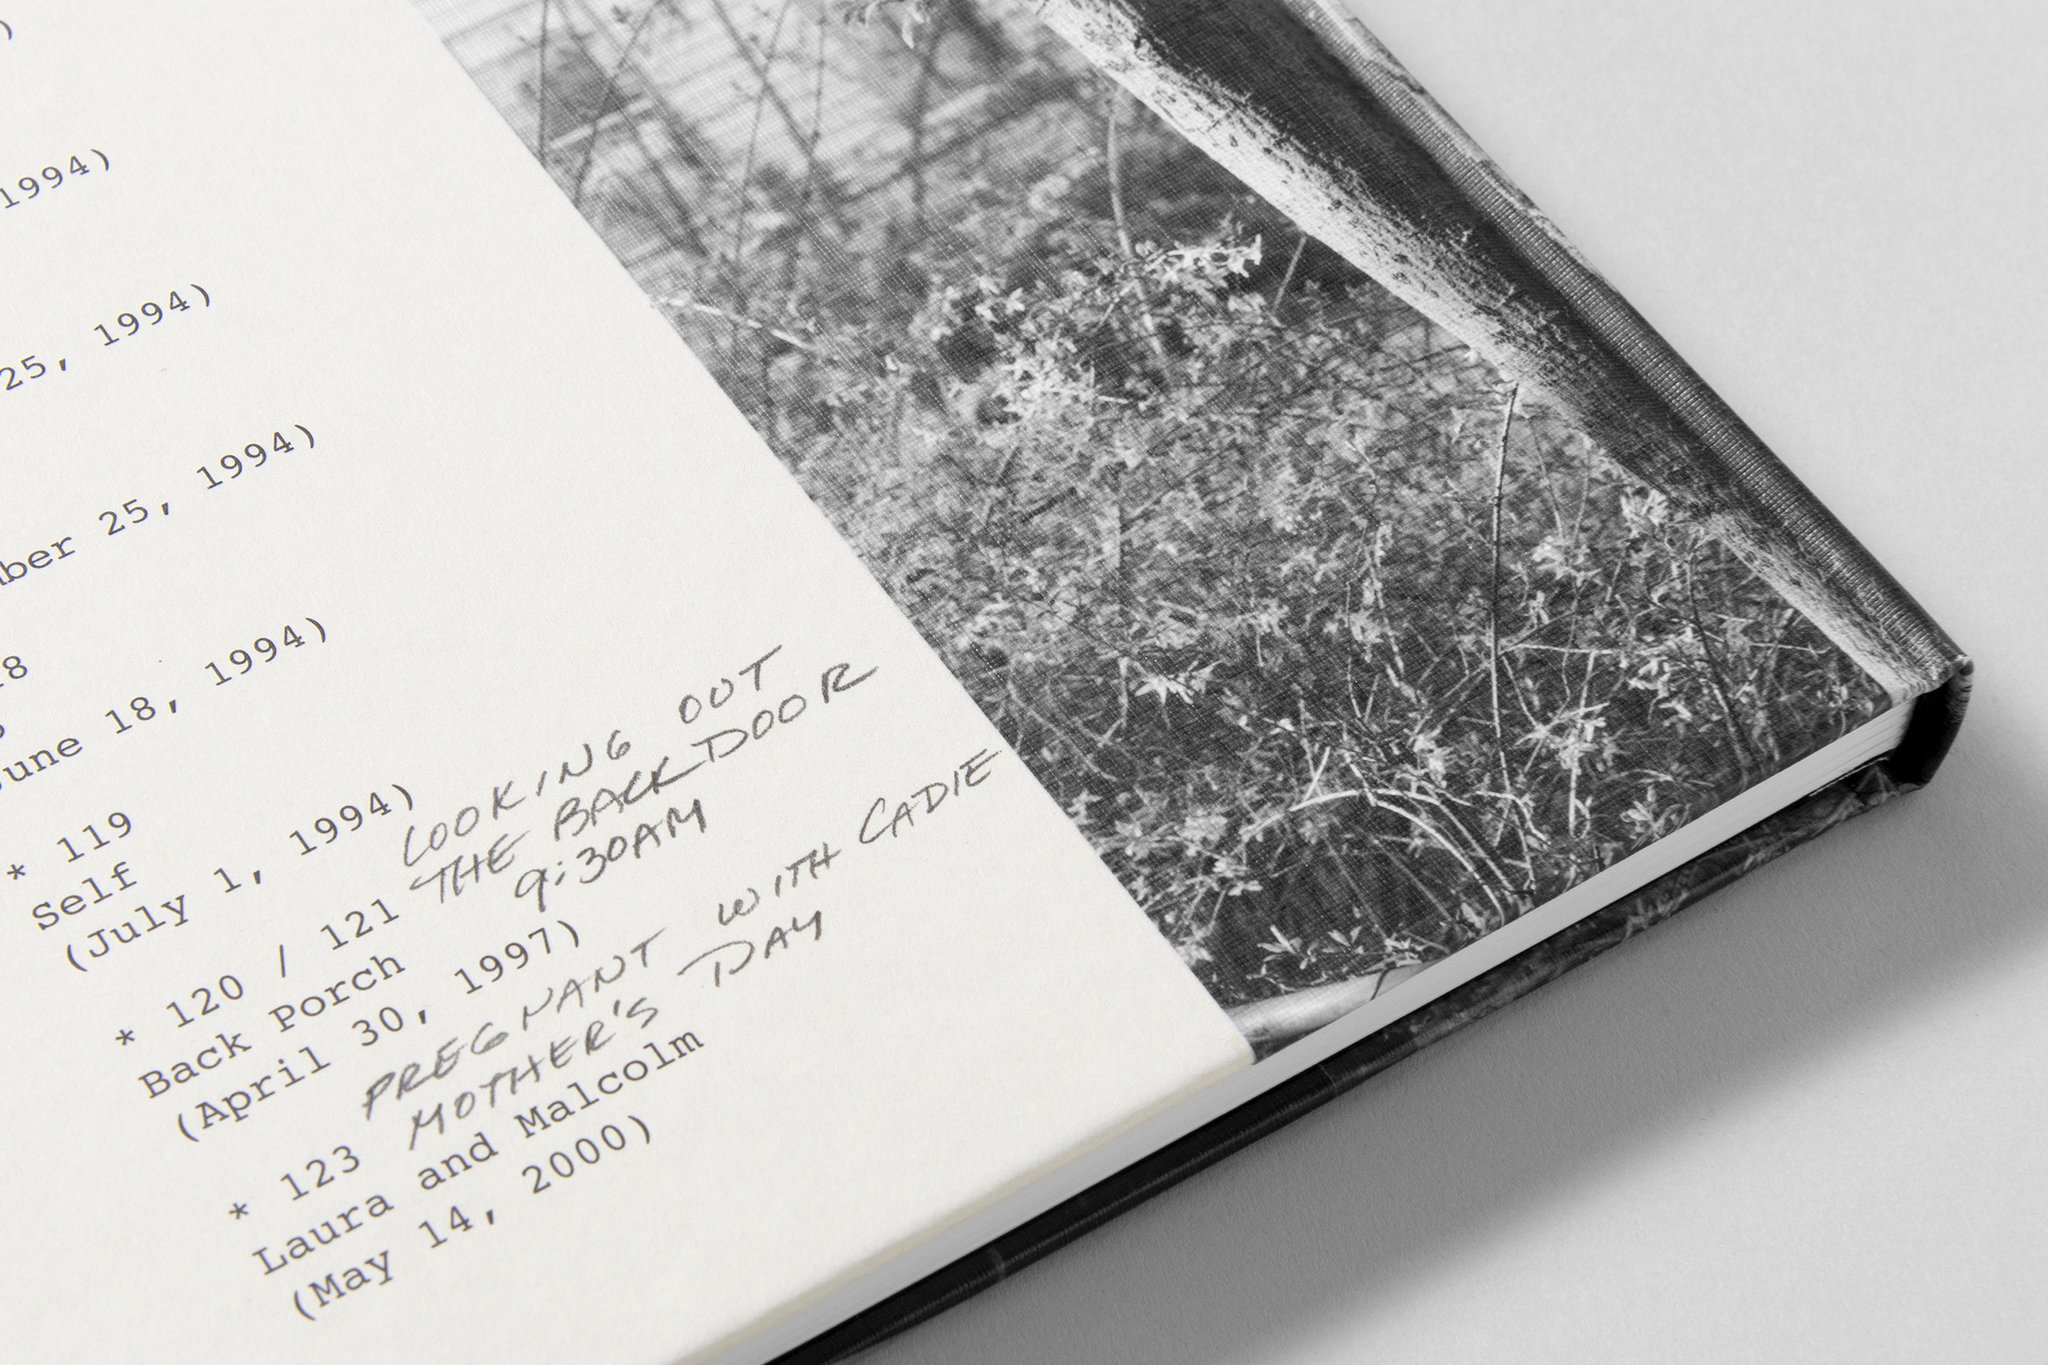 1994)
25, 1994)
25, 1994)
June 18, 1994)
* 119
Self
(July 1, 1994)
* 120 / 121 LOOKING OUT
THE BACK DOOR
9:30AM
Back Porch
(April 30, 1997)
* 123 PREGNANT WITH CADIE
MOTHER'S DAY
Laura and Malcolm
(May 14, 2000)